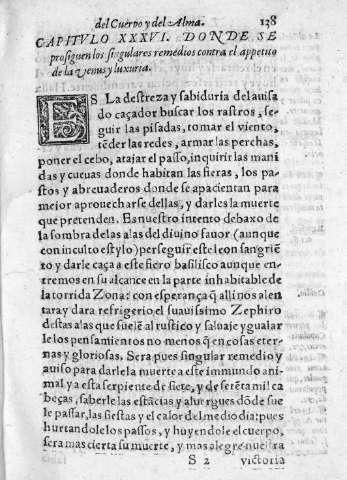 del Cuerpo y del Alma. 138
CAPITVLO XXXVI. DONDE SE
prosiguen los singulares remedios contra el appetito
de la Venus y luxuria.
ES La destreza y sabiduria del auisa
do caçador buscar los rastros, se-
guir las pisadas, tomar el viento,
tẽder las redes, armar las perchas,
poner el cebo, atajar el passo, inquirir las mani
das y cueuas donde habitan las fieras, los pa-
stos y abreuaderos donde se apacientan para
mejor aprouecharse dellas, y darles la muerte
que pretenden. Es nuestro intento debaxo de
la sombra de las alas del diuino fauor (aunque
con inculto estylo) perseguir este leon sangriẽ
to y darle caça a este fiero basilisco aunque en-
tremos en su alcance en la parte inhabitable de
la torrida Zona: con esperança q̃ alli nos alen
tara y dara refrigerio el suauissimo Zephiro
destas alas que suelẽ al rustico y saluaje ygualar
le los pensamientos no menos q̃ en cosas eter-
nas y gloriosas. Sera pues singular remedio y
auiso para darle la muerte a este immundo ani
mal y a esta serpiente de siete, y de setẽta mil ca
beças, saberle las estãcias y aluergues dõde sue
le passar, las siestas y el calor del medio dia: pues
hurtandole los passos, y huyendole el cuerpo,
sera mas cierta su muerte, y mas alegre nuestra
S 2 victoria